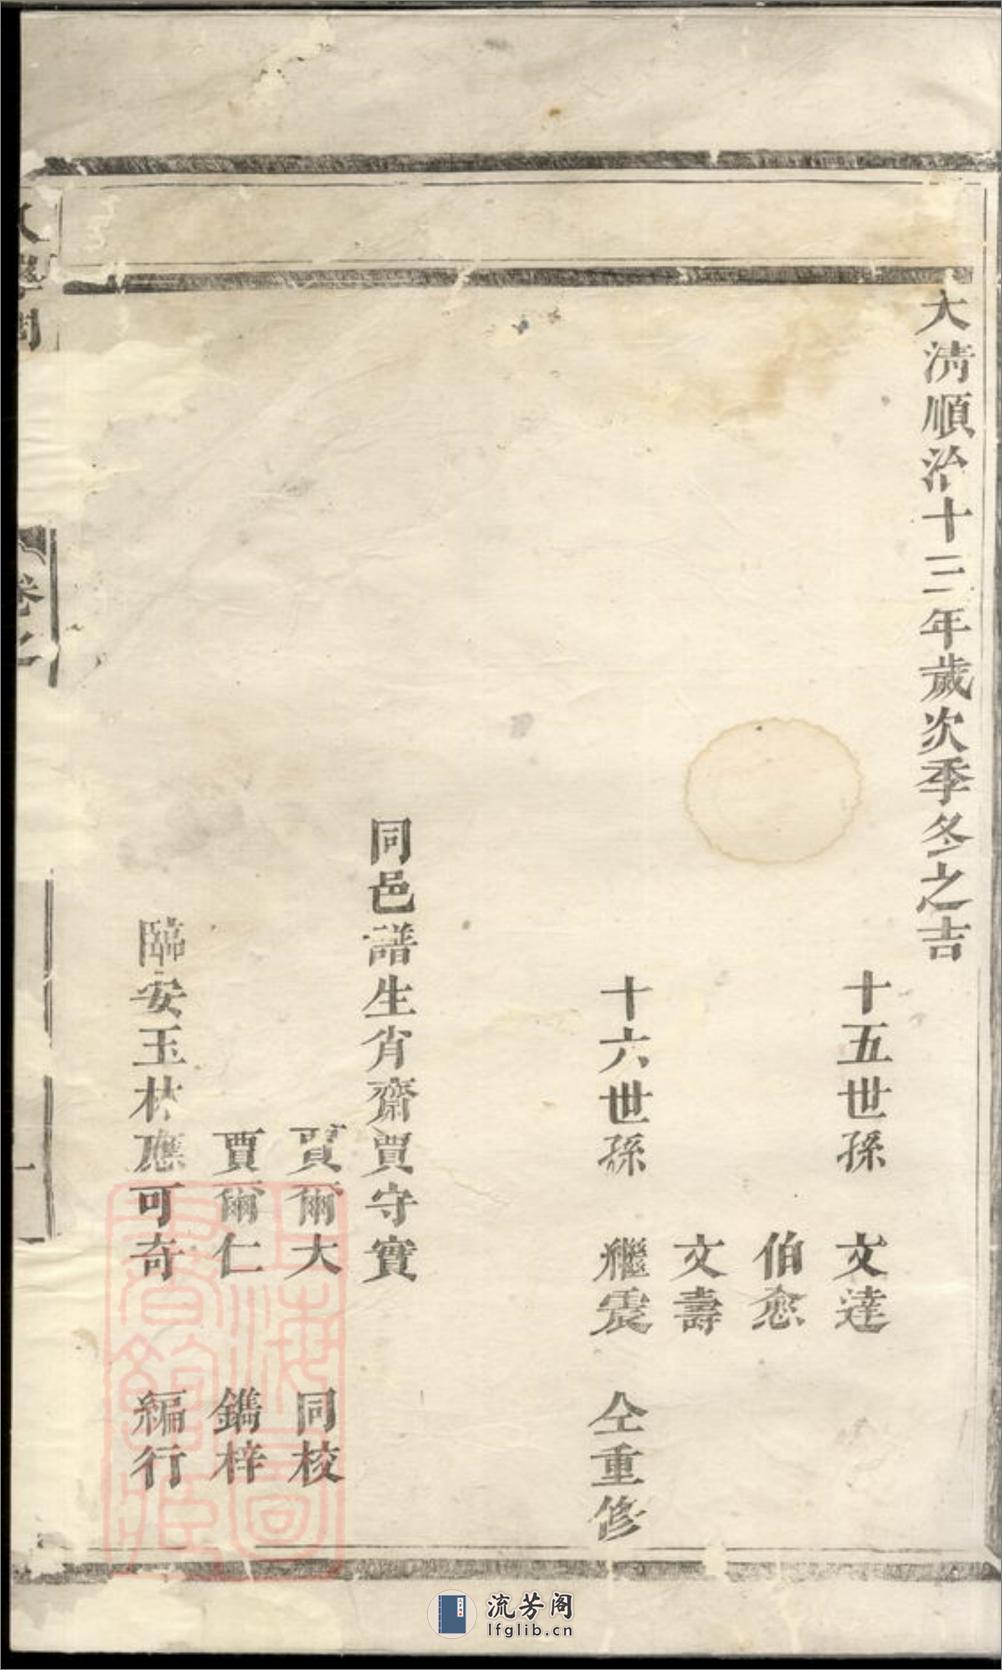 大淸順治十三年歲次季冬之吉
十五世孫　文達
伯悆
文壽
十六世孫　繼震　仝重修
同邑譜生肖齋賈守實
賈爾大　同校
賈爾仁　鐫梓
臨安玉林應可奇　編行
卷之
一
上海圖書館藏
流芳阁
lfglib.cn